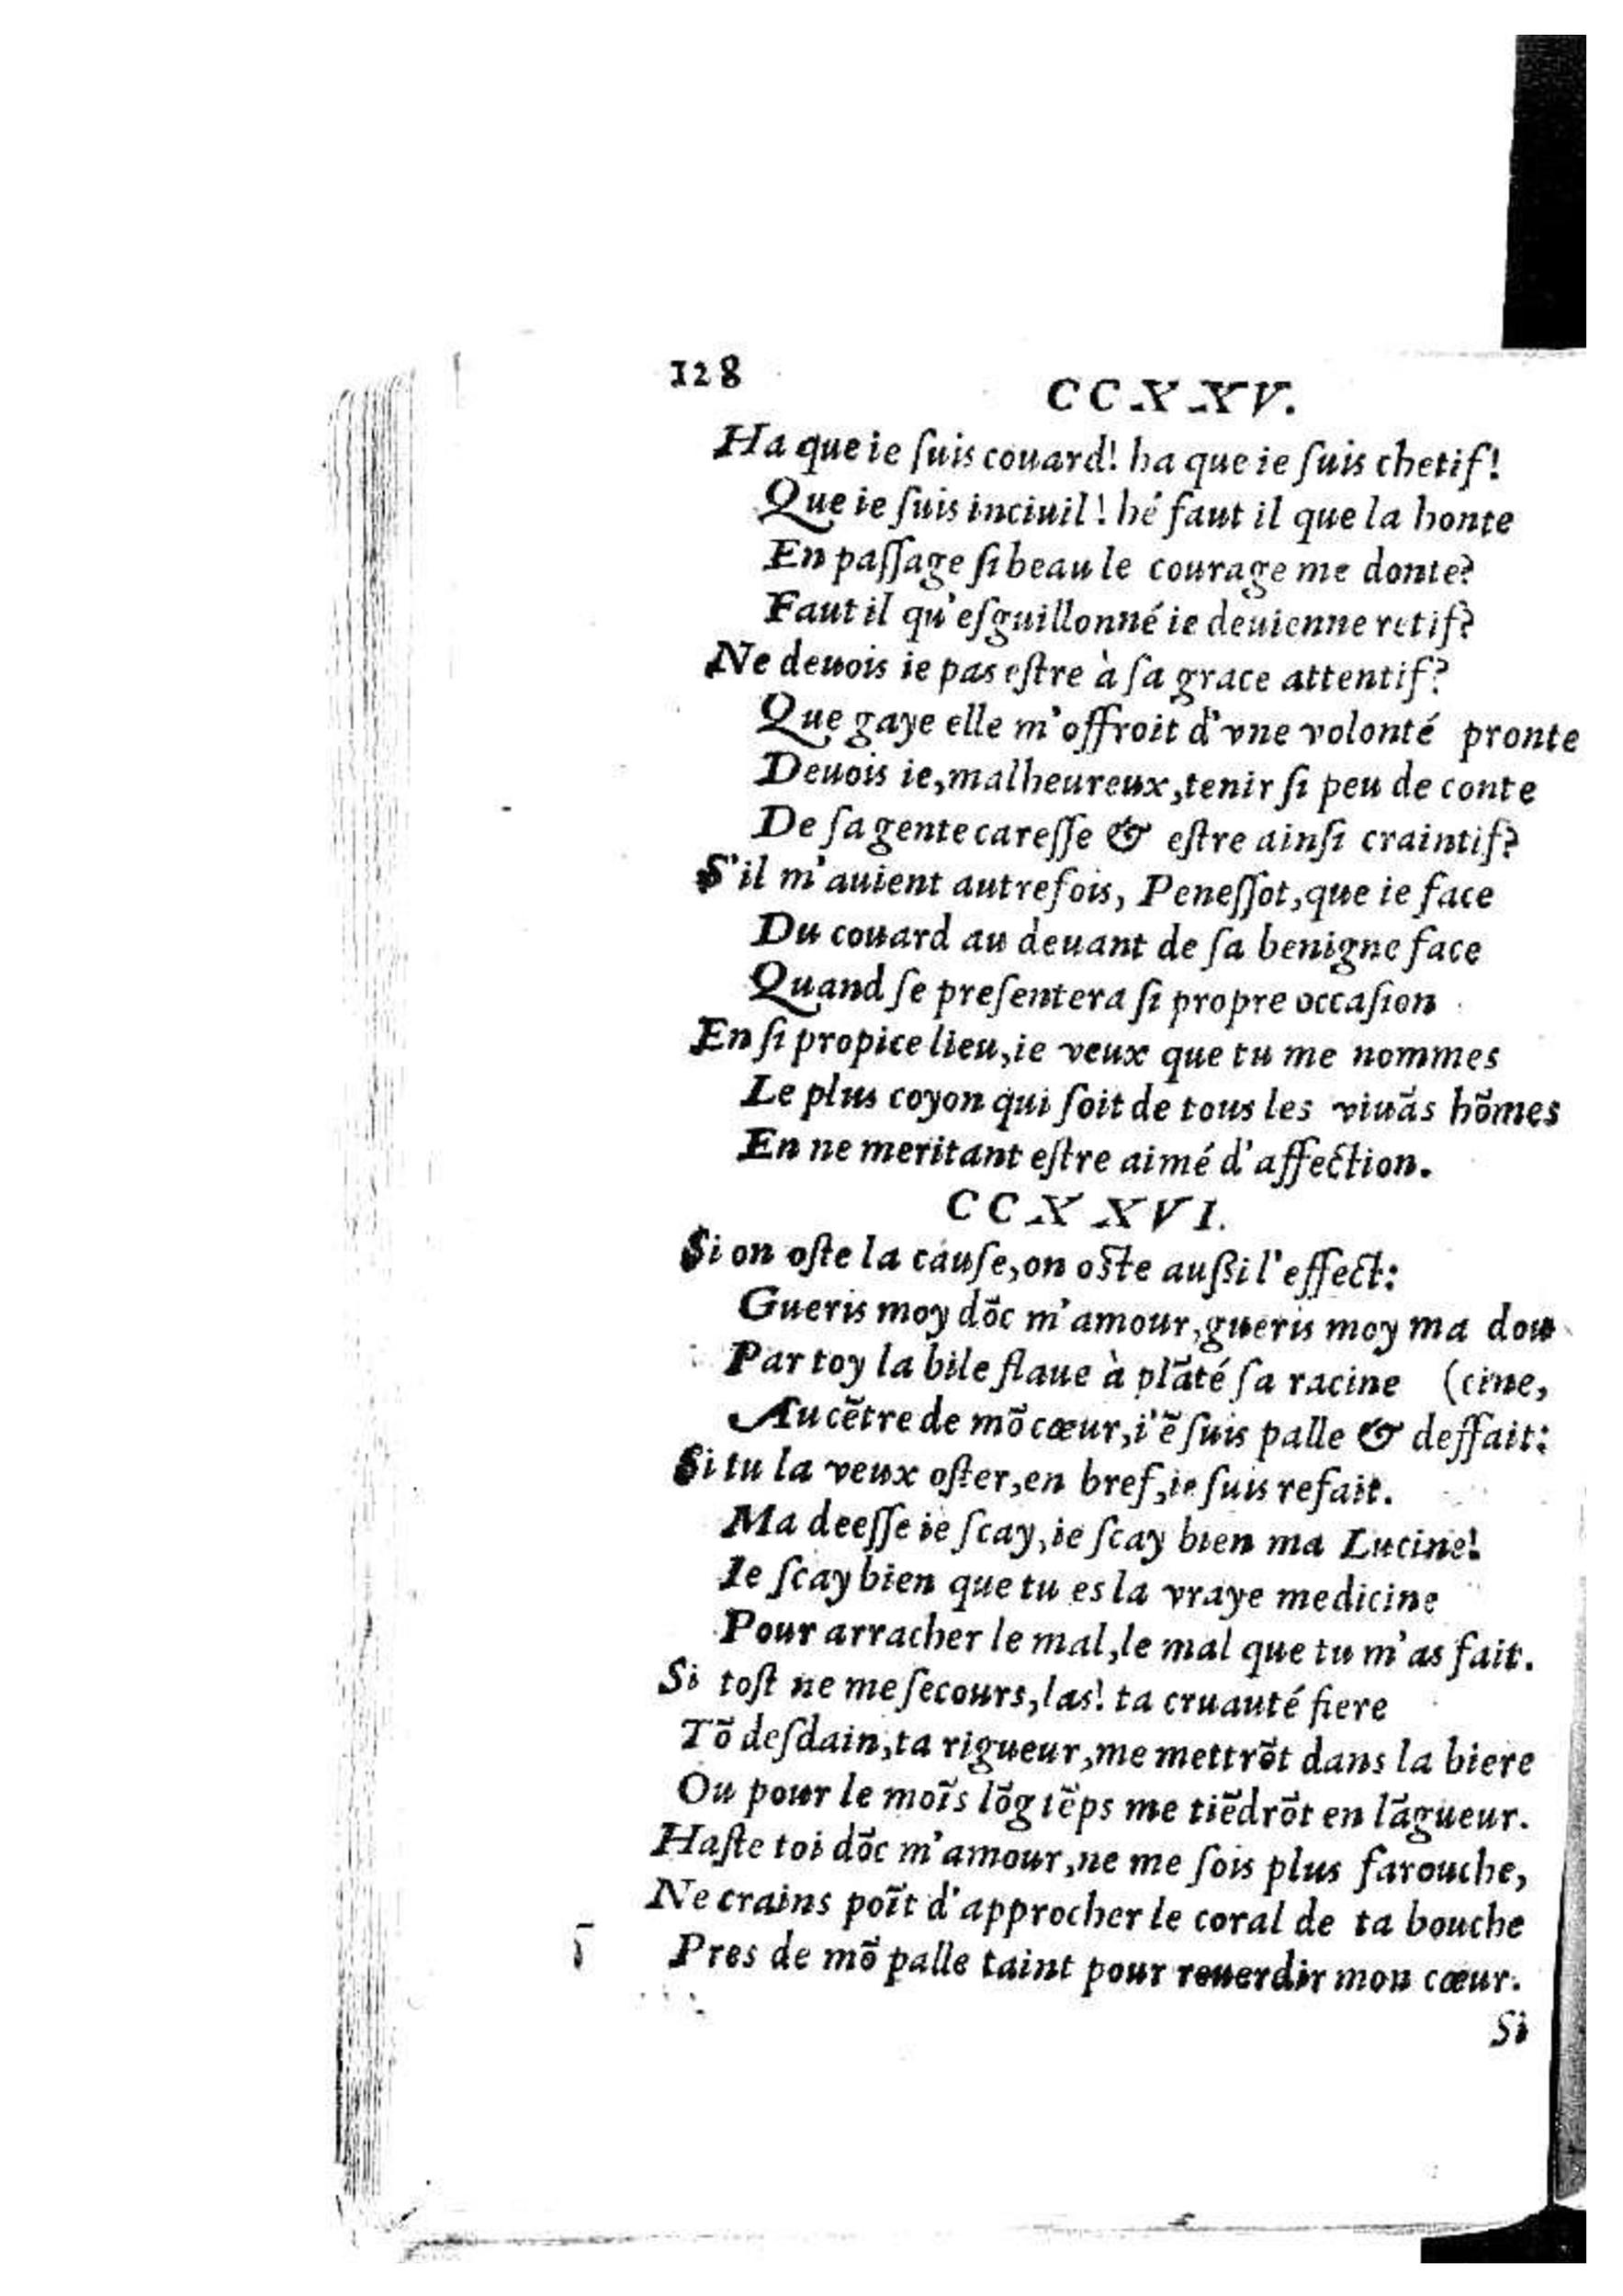 128
CCXXV.
Ha que ie ſuis couard! ha que ie ſuis chetif!
Que ie ſuis inciuil! hé faut il que la honte
En paſſage ſi beau le courage me donte?
Faut il qu'eſguillonné ie deuienne retif?
Ne deuois ie pas eſtre à ſa grace attentif?
Que gaye elle m'offroit d'vne volonté pronte
Deuois ie, malheureux, tenir ſi peu de conte
De ſa gente careſſe & eſtre ainſi craintif?
S'il m'auient autrefois, Peneſſot, que ie face
Du couard au deuant de ſa benigne face
Quand ſe preſentera ſi propre occaſion
En ſi propice lieu, ie veux que tu me nommes
Le plus coyon qui ſoit de tous les viuãs hõmes
En ne meritant eſtre aimé d'affection.
CCXXVI.
Si on oſte la cauſe, on oſte außi l'effect:
Gueris moy dõc m'amour, gueris moy ma dou
Par toy la bile flaue à plãté ſa racine (cine,
Au cẽtre de mõ cœur, i'ẽ ſuis palle & deffait:
Si tu la veux oſter, en bref, ie ſuis refait.
Ma deeſſe ie ſcay, ie ſcay bien ma Lucine!
Ie ſcay bien que tu es la vraye medicine
Pour arracher le mal, le mal que tu m'as fait.
Si toſt ne me ſecours, las! ta cruauté fiere
Tõ deſdain, ta rigueur, me mettrõt dans la biere
Ou pour le moĩs lõg tẽps me tiẽdrõt en lãgueur.
Haſte toi dõc m'amour, ne me ſois plus farouche,
Ne crains poĩt d'approcher le coral de ta bouche
Pres de mõ palle taint pour reuerdir mon cœur.
Si